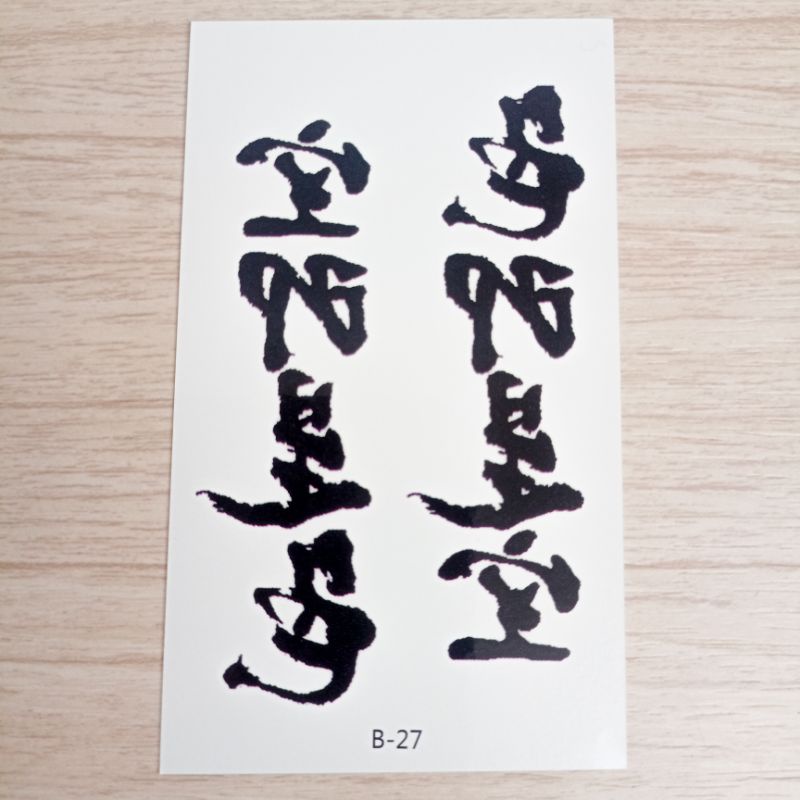 色即是空
空即是色
B-27